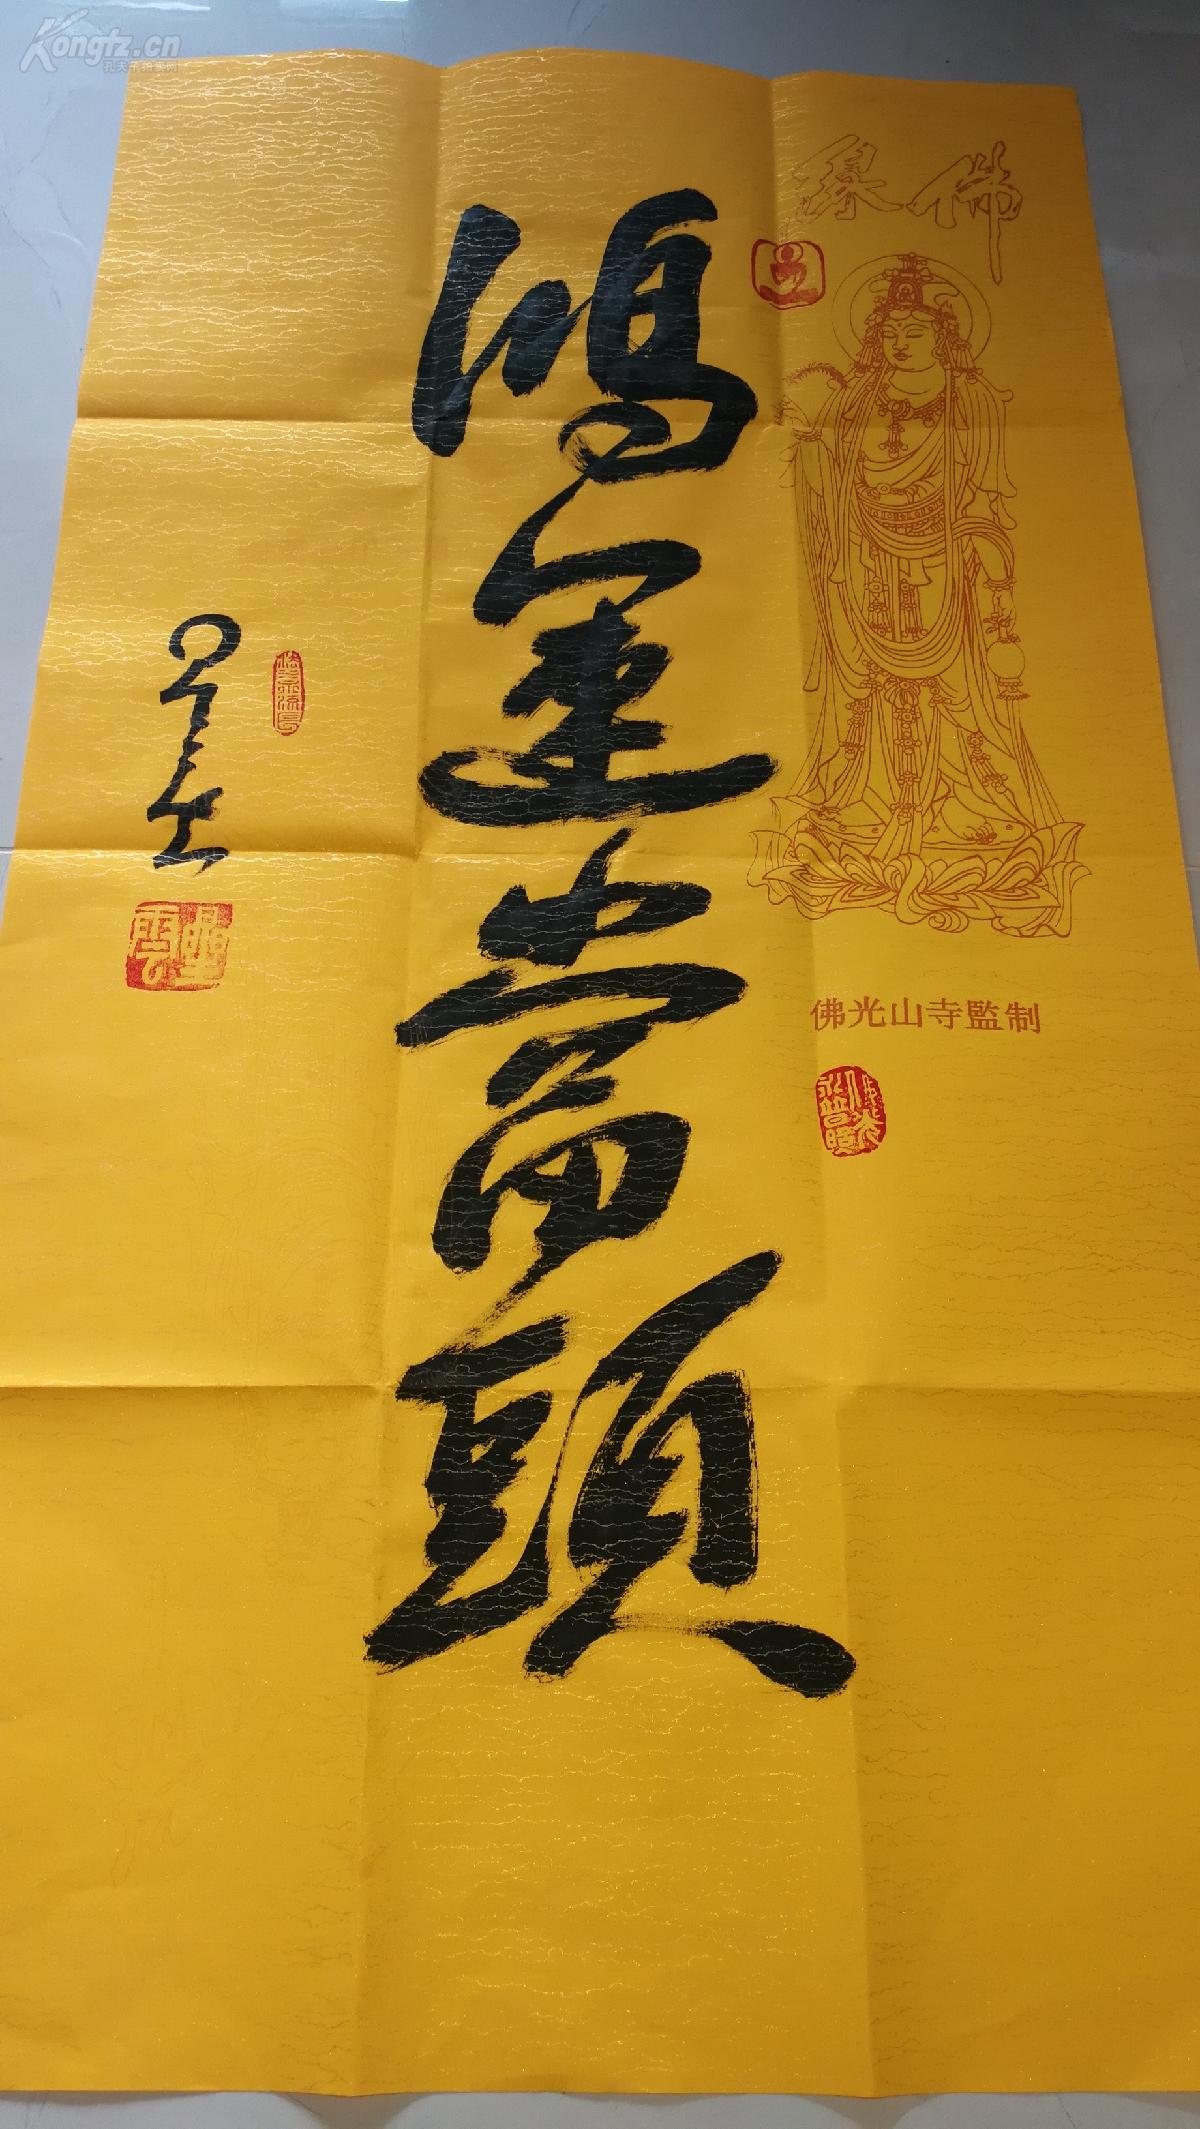 Kongfz.cn
孔夫子拍卖网
佛緣
佛光山寺監制
鴻運當頭
星雲
星雲